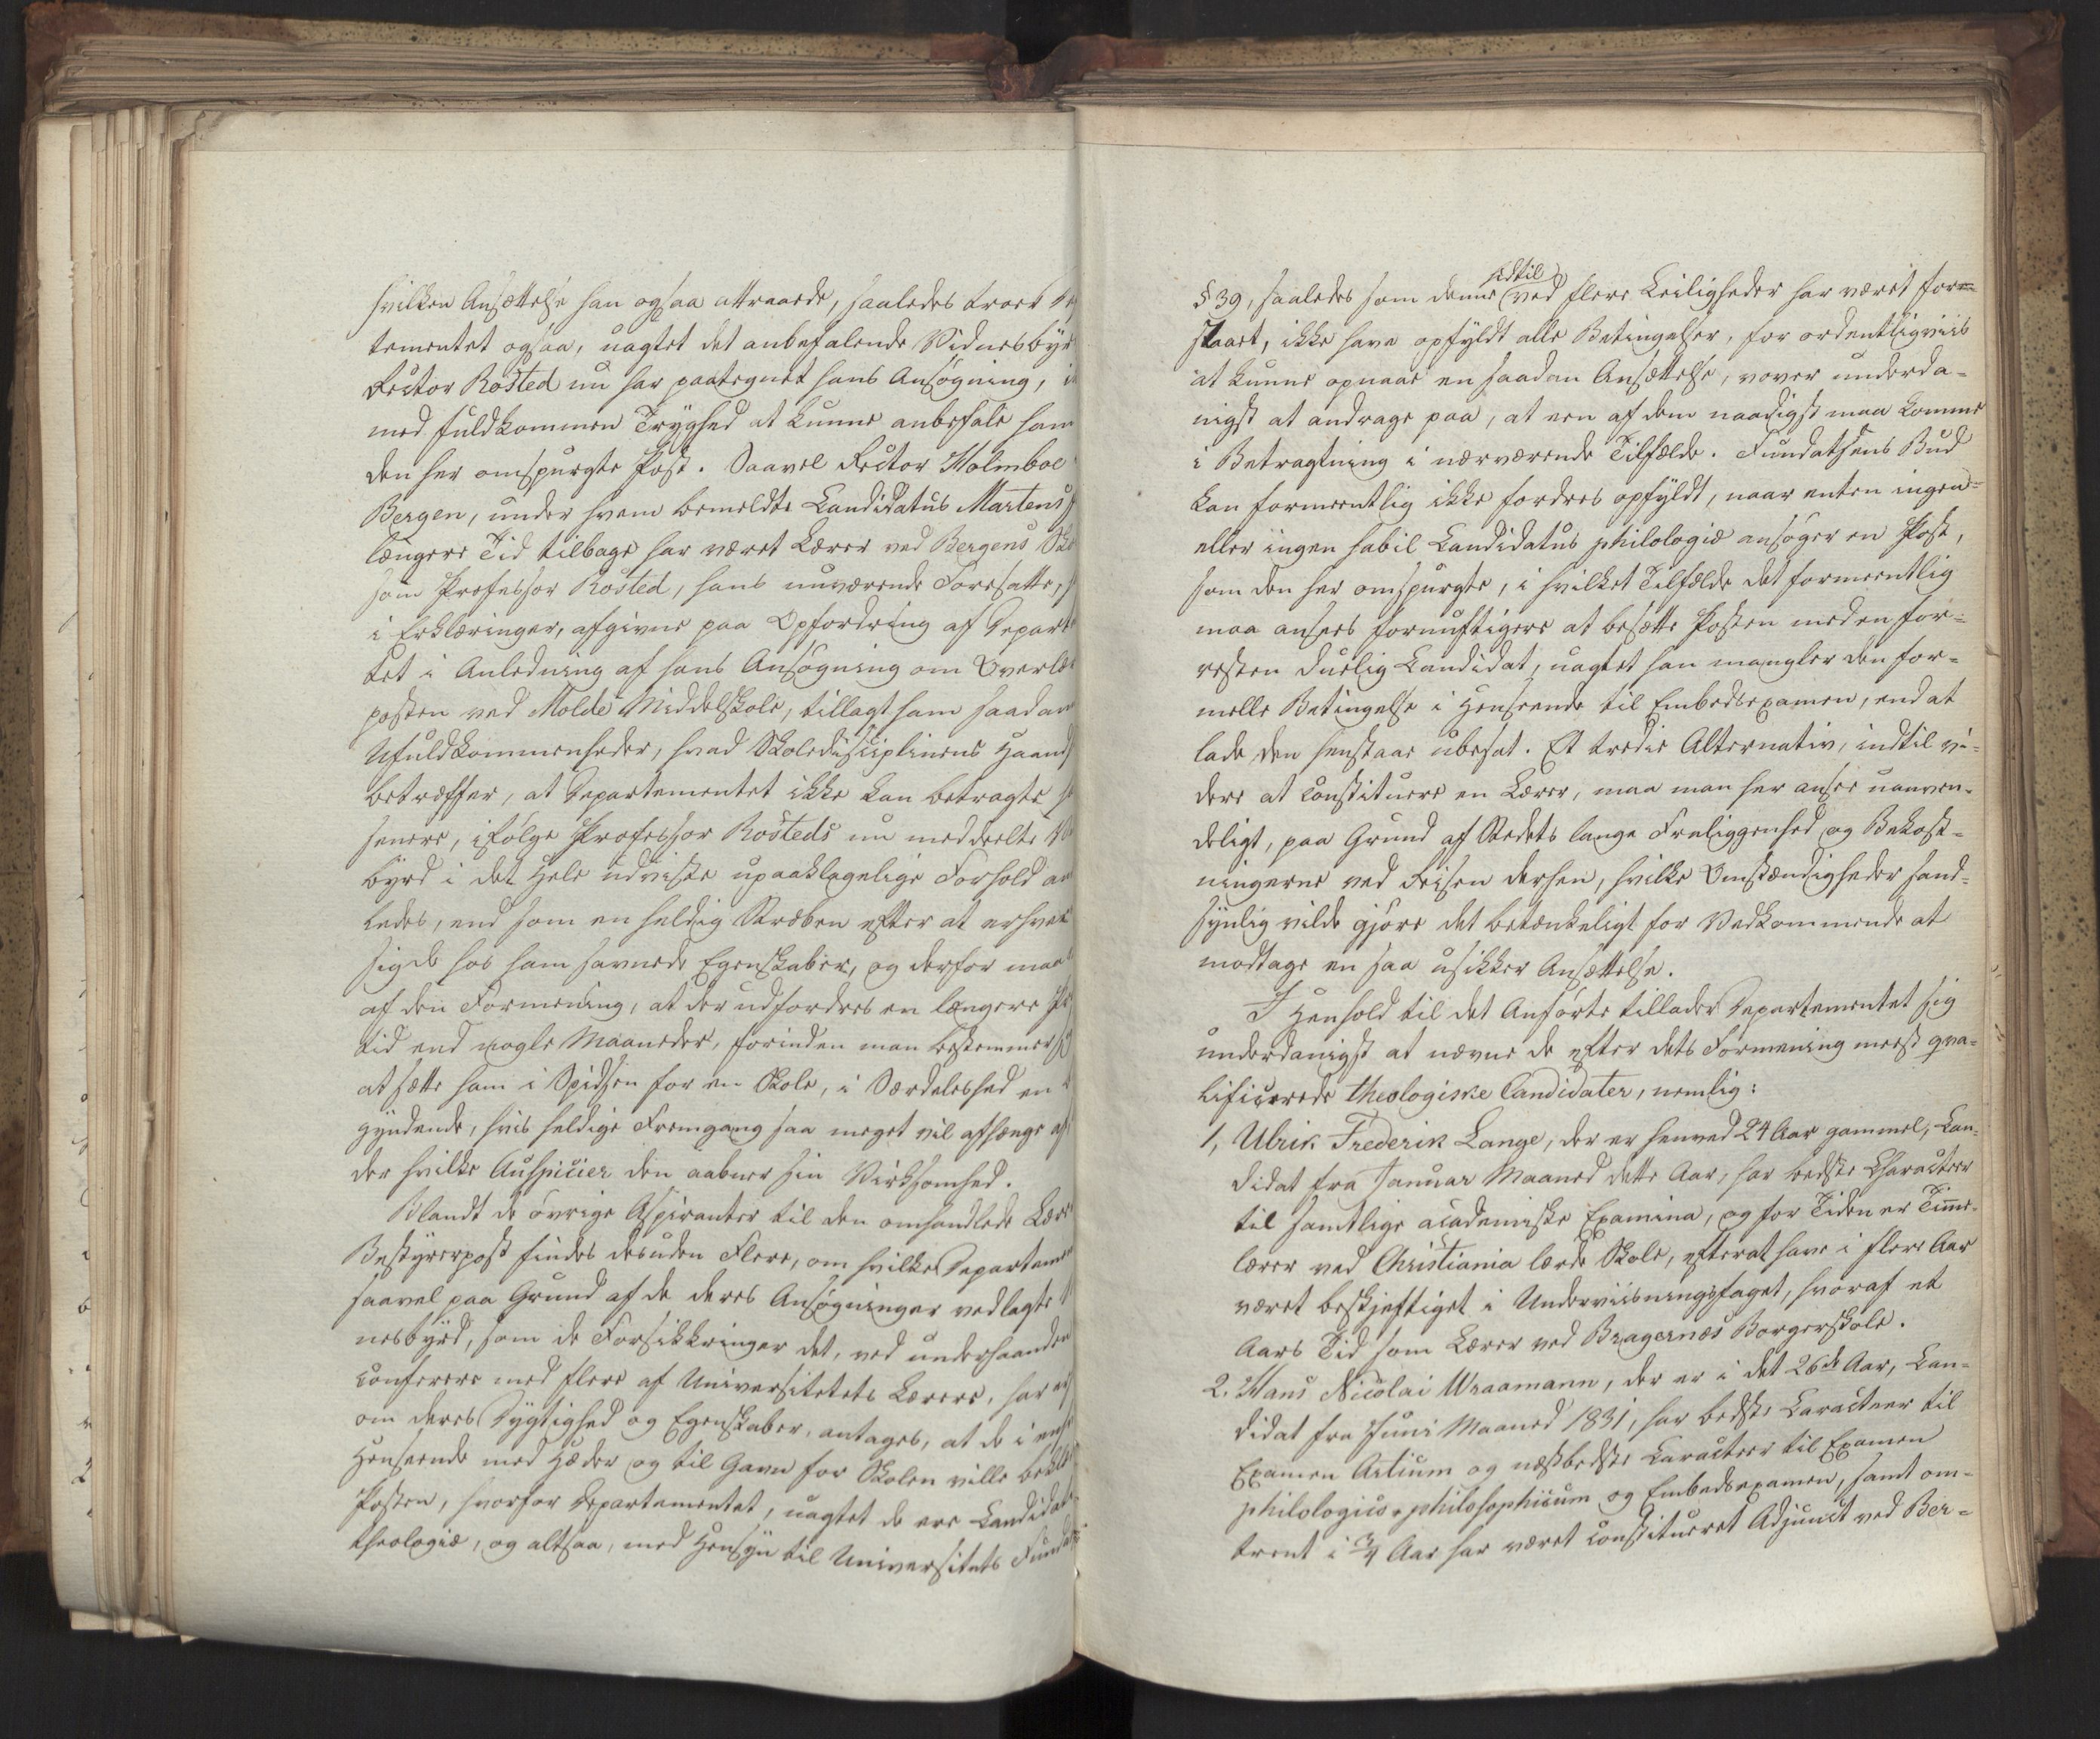 hvilken Ansættelse han ogsaa attraaede, saaledes troer
tementet ogsaa, uagtet det anbefalende Vidnesbyr
Rector Rosted nu har paategnet hans Ansøgning, i
med fuldkommen Tryghed at kunne anbefale ham
den her omspurgte Post. Saavel Rector Holmboe
Bergen, under hvem bemeldte Candidatus Martens
længere Tid tilbage har været Lærer ved Bergens Sko
som Professor Rosted, hans nuværende Foresatte,
i Erklæringer, afgivne paa Opfordring af Departe
tet i Anledning af hans Ansøgning om Overlæ
posten ved Molde Middelskole, tillagt ham saadan
Ufuldkommenheder, hvad Skoledisciplinens Haand
betræffer, at Departementet ikke kan betragte
senere, ifølge Professor Rosteds nu meddeelte
byrd i det Hele udviste upaaklagelige Forhold an
ledes, end som en heldig Stræben efter at erhver
sig de hos ham savnede Egenskaber, og derfor maa
af den Formening, at der udfordres en længere Pr
tid end nogle Maaneder, forinden man bestemmer
at sætte ham i Spidsen for en Skole, i Særdeleshed en
gyndende, hvis heldige Fremgang saa meget vil afhænge af
der hvilke Auspicier den aabner sin Virksomhed.
Blandt de øvrige Aspiranter til den omhandlede Lære
Bestyrerpost findes desuden Flere, om hvilke Departeme
saavel paa Grund af de deres Ansøgninger vedlagte
nesbyrd, som de Forsikkringer det, ved underhaanden
conferere med flere af Universitetets Lærere, har er
om deres Dygtighed og Egenskaber, antages, at de i en
Henseende med Hæder og til Gavn for Skolen ville bekl
Posten, hvorfor Departementet, uagtet de ere Candidat
theologiæ, og altsaa, med Hensyn til Universitets Funda
§ 39, saaledes som denne hidtil ved flere Leiligheder har været for-
staaet, ikke have opfyldt alle Betingelser, for ordentligviis
at kunne opnaae en saadan Ansættelse, vover underda-
nigst at andrage paa, at een af dem naadigst maa komme
i Betragtning i nærværende Tilfælde. Fundatsens Bud
kan formeentlig ikke fordres opfyldt, naar enten ingen
eller ingen habil Candidatus philologiæ ansøger en Post,
som den her omspurgte, i hvilket Tilfælde det formeentlig
maa ansees fornuftigere at besætte Posten med en for-
resten duelig Candidat, uagtet han mangler den for-
melle Betingelse i Henseende til Embedsexamen, end at
lade den henstaae ubesat. Et tredie Alternativ, indtil vi-
dere at constituere en Lærer, maa man her ansee uanven-
deligt, paa Grund af Stedets lange Fraliggenhed og Bekost-
ningerne ved Reisen derhen, hvilke Omstændigheder sand-
synlig vilde gjøre det betænkeligt for Vedkommende at
modtage en saa usikker Ansættelse.
I Henhold til det Anførte tillader Departementet sig
underdanigst at nævne de efter dets Formening meest qva-
lificerede theologiske Candidater, nemlig:
1, Ulrik Frederik Lange, der er henved 24 Aar gammel, Can-
didat fra Januar Maaned dette Aar, har bedste Characteer
til samtlige academiske Examina, og for Tiden er Time-
lærer ved Christiania lærde Skole, efterat have i flere Aar
været beskjeftiget i Underviisningsfaget, hvoraf et
Aars Tid som Lærer ved Bragernæs Borgerskole.
2. Hans Nicolai Wraamann, der er i det 26de Aar, Can-
didat fra Juni Maaned 1831, har bedste Caracteer til
Examen Artium og næstbedste Caracteer til Examen
philologico-philosophicum og Embedsexamen, samt om-
trent i 3/4 Aar har været constitueret Adjunct ved Ber-